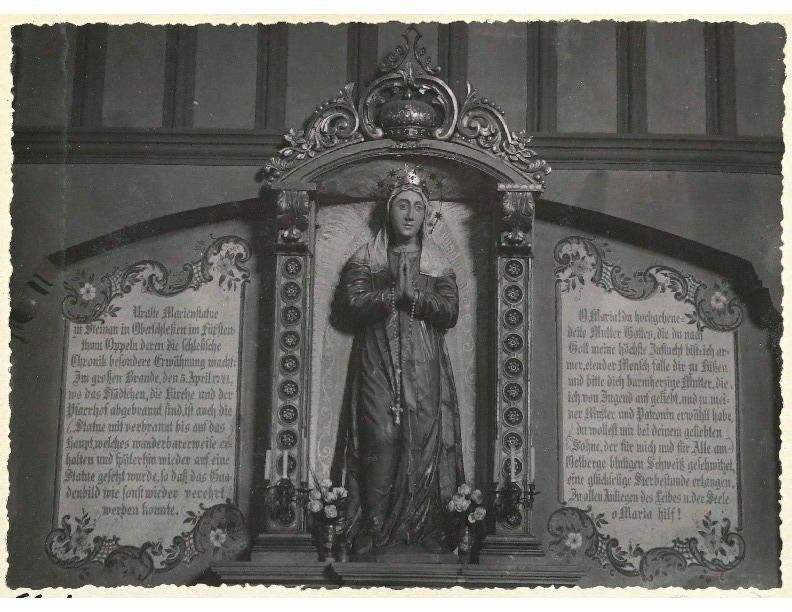 Uralte Marienstatue
zu Steinau in Oberschlesien im Fürsten-
thum Oppeln deren die schlesische
Chronik besondere Erwähnung macht:
Im großen Brande, den 5. April
wo das Städtchen, die Kirche und der
Pfarrhof abgebrannt sind, ist auch die
Statue mit verbrannt bis auf das
Haupt, welches wunderbarerweise er-
halten und späterhin wieder auf eine
Statue gesetzt wurde, so daß das Gna-
denbild wie sonst wieder verehrt
werden konnte.
O Maria! du hochgebene-
deite Mutter Gottes, die du nach
Gott meine höchste Zuflucht bist: ich ar-
mer, elender Mensch falle dir zu Füßen
und bitte dich barmherzige Mutter, die
ich von Jugend auf geliebt, und zu mei-
ner Mutter und Patronin erwählt habe,
du wollest mir bei deinem geliebten
Sohne, der für mich und für Alle am
Oelberge blutigen Schweiß geschwitzet,
eine glückselige Sterbestunde erlangen.
In allen Anliegen des Leibes u. der Seele
o Maria hilf!